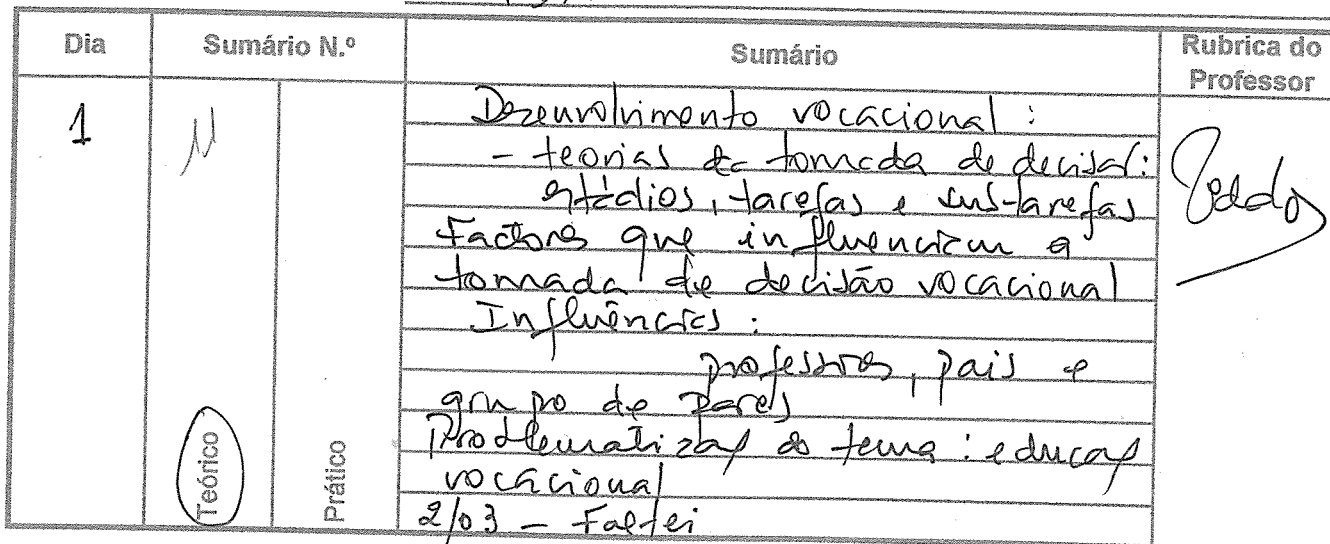 Dia Sumário N.º Sumário Rubrica do Professor
1 11
Desenvolvimento vocacional :
- teorias da tomada de decisão:
estádios, tarefas e sub-tarefas
Factores que influenciam a
tomada de decisão vocacional
Influências :
professores, pais e
grupo de pares
Problematização do tema : educação
vocacional
2/03 - Faltei
Teórico Prático